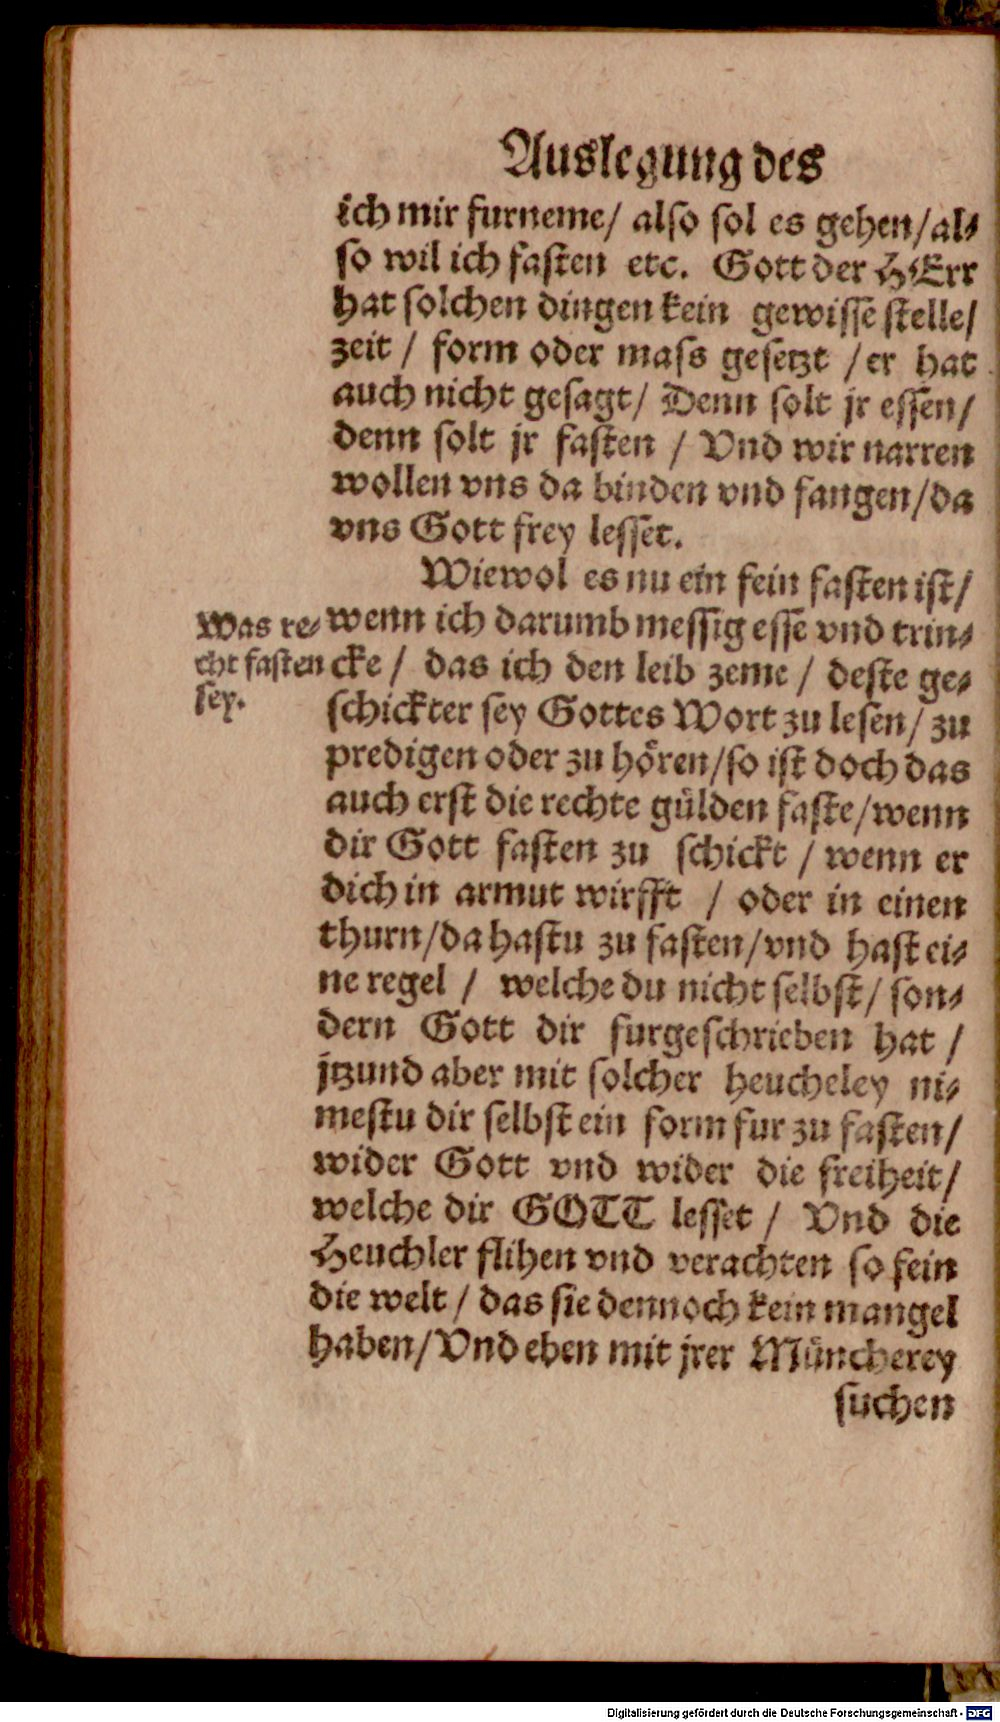 Auslegung des
ich mir furneme/ also sol es gehen/al⸗
so wil ich fasten etc. Gott der HErr
hat solchen dingen kein gewisse stelle/
zeit / form oder mass gesetzt / er hat
auch nicht gesagt/ Denn solt jr essen/
denn solt jr fasten / Vnd wir narren
wollen vns da binden vnd fangen/da
vns Gott frey lesset.
Wiewol es nu ein fein fasten ist/
wenn ich darumb messig esse vnd trin⸗
cke / das ich den leib zeme / deste ge⸗
schickter sey Gottes Wort zu lesen/ zu
predigen oder zu hören/so ist doch das
auch erst die rechte gülden faste/wenn
dir Gott fasten zu schickt / wenn er
dich in armut wirfft / oder in einen
thurn/da hastu zu fasten/vnd hast ei⸗
ne regel / welche du nicht selbst/ son⸗
dern Gott dir furgeschrieben hat /
jtzund aber mit solcher heucheley ni⸗
mestu dir selbst ein form fur zu fasten/
wider Gott vnd wider die freiheit/
welche dir GOTT lesset / Vnd die
Heuchler flihen vnd verachten so fein
die welt / das sie dennoch kein mangel
haben/Vnd eben mit jrer Müncherey
suchen
Was re⸗
cht fasten
sey.
Digitalisierung gefördert durch die Deutsche Forschungsgemeinschaft - DFG